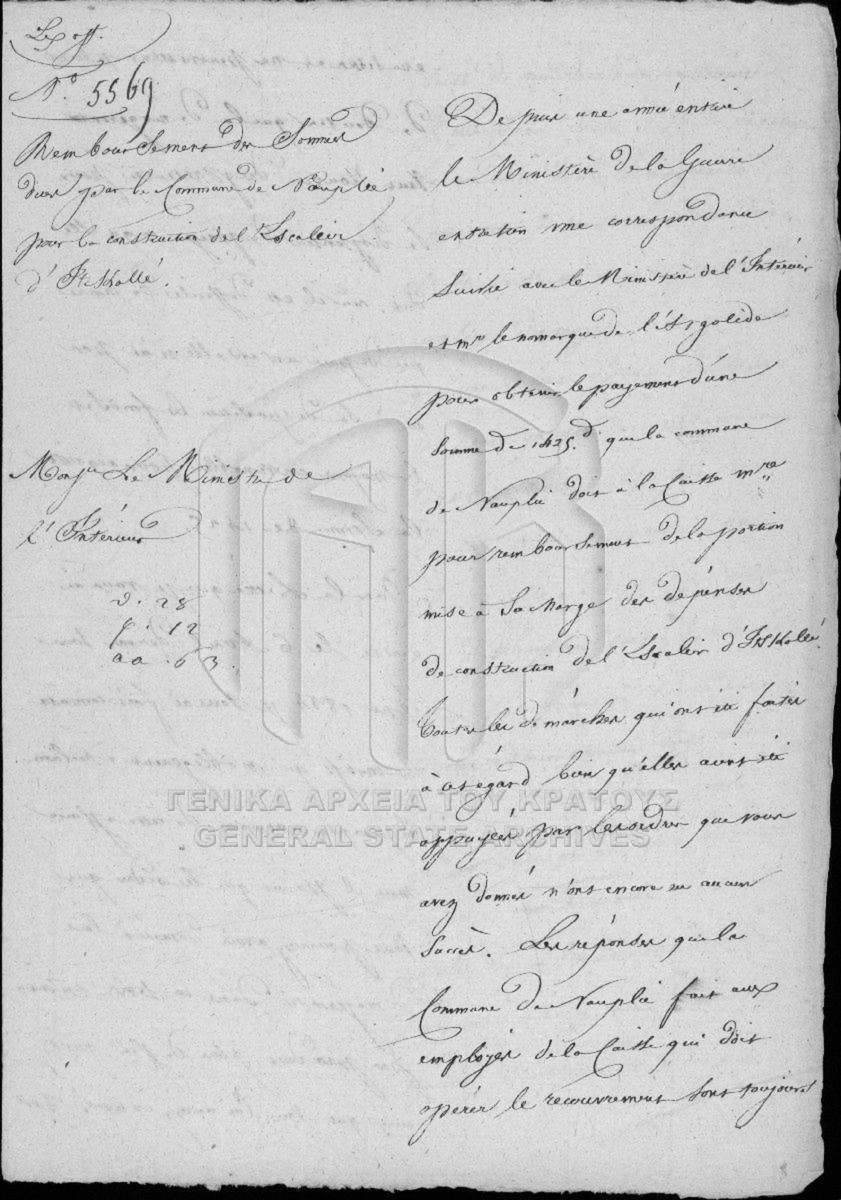 N.º 5569
Remboursement des Sommes
dues par la Commune de Nauplie
pour la construction de l'Escalier
d'Itskallé.
Monsr Le Ministre de
l'Intérieur
d. 28
g. 12
aa. 63.
Depuis une année entière
le Ministère de la Guerre
entretien une correspondance
Suivie avec le Ministère de l'Intérieur
et mr le nomarque de l'Argolide
pour obtenir le payement d'une
Somme de 1425.d que la commune
de Nauplie doit à la Caisse mre
pour remboursement de la portion
mise à Sa charge des dépenses
de construction de l'Escalier d'Itskallé.
Toutes les démarches qui ont été faites
à cet égard bien qu'elles aient été
appuyées par les ordres que vous
avez donnés n'ont encore eu aucun
Succès. Les réponses que la
Commune de Nauplie fait aux
employés de la Caisse qui doit
opérer le recouvrement sont toujours
ΓΕΝΙΚΑ ΑΡΧΕΙΑ ΤΟΥ ΚΡΑΤΟΥΣ
GENERAL STATE ARCHIVES